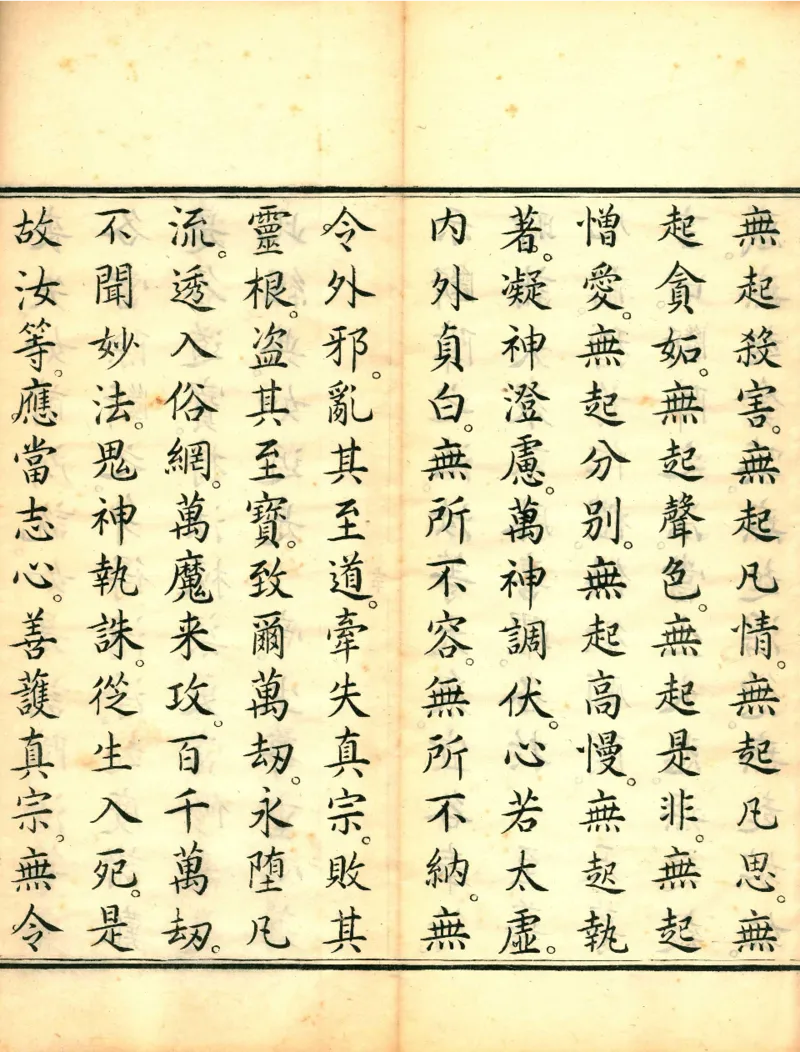 無起殺害。無起凡情。無起凡思。無
起貪妬。無起聲色。無起是非。無起
憎愛。無起分别。無起高慢。無起執
著。凝神澄慮。萬神調伏。心若太虛。
内外貞白。無所不容。無所不納。無
令外邪。亂其至道。牽失真宗。敗其
靈根。盗其至寶。致爾萬劫。永墮凡
流。透入俗網。萬魔来攻。百千萬劫。
不聞妙法。鬼神執誅。從生入死。是
故汝等。應當志心。善護真宗。無令